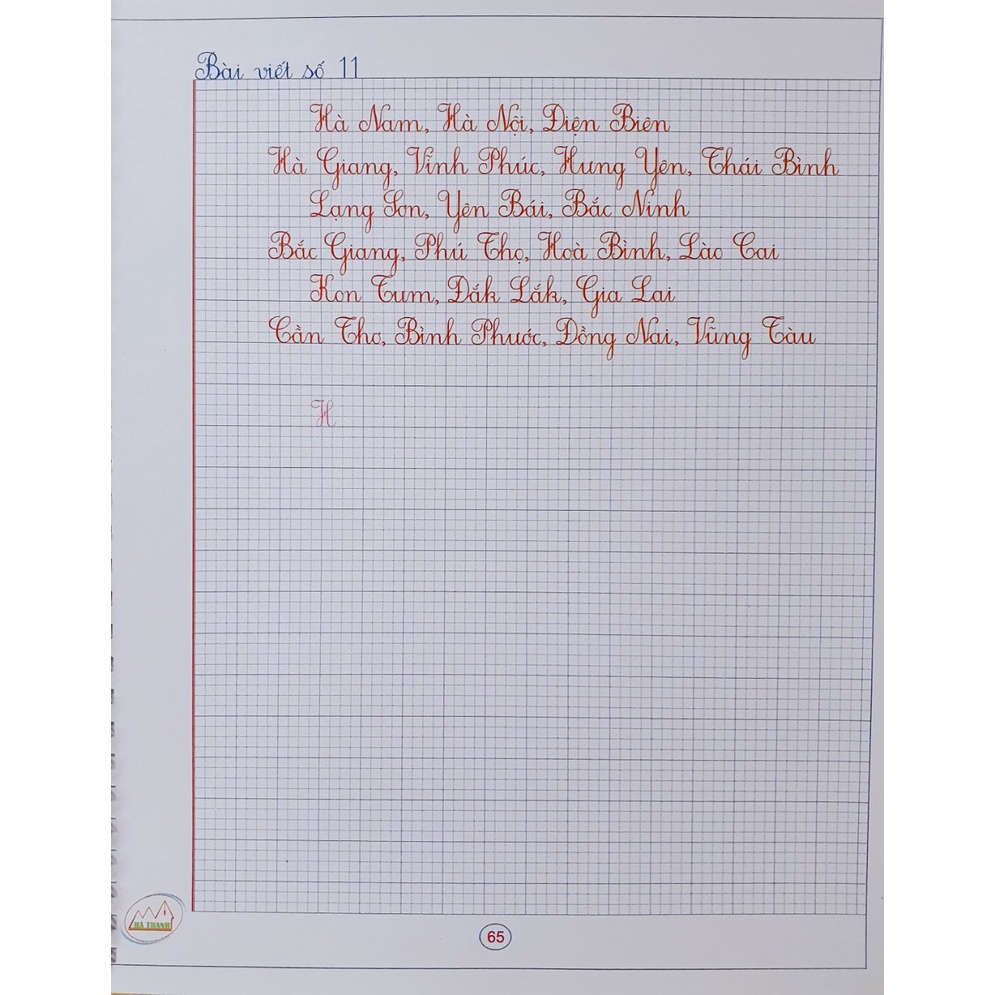 Bài viết số 11
Hà Nam, Hà Nội, Điện Biên
Hà Giang, Vĩnh Phúc, Hưng Yên, Thái Bình
Lạng Sơn, Yên Bái, Bắc Ninh
Bắc Giang, Phú Thọ, Hoà Bình, Lào Cai
Kon Tum, Đắk Lắk, Gia Lai
Cần Thơ, Bình Phước, Đồng Nai, Vũng Tàu
H
HÀ THANH
65